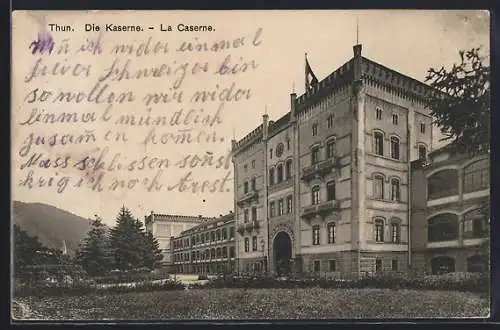 Thun. Die Kaserne. – La Caserne.
Nun ich wider einmal
freier Schweizer bin
so wollen wir wider
einmal mündlich
zusam̄en kom̄en.
Muss schliessen sonst
krig ich noch arest.